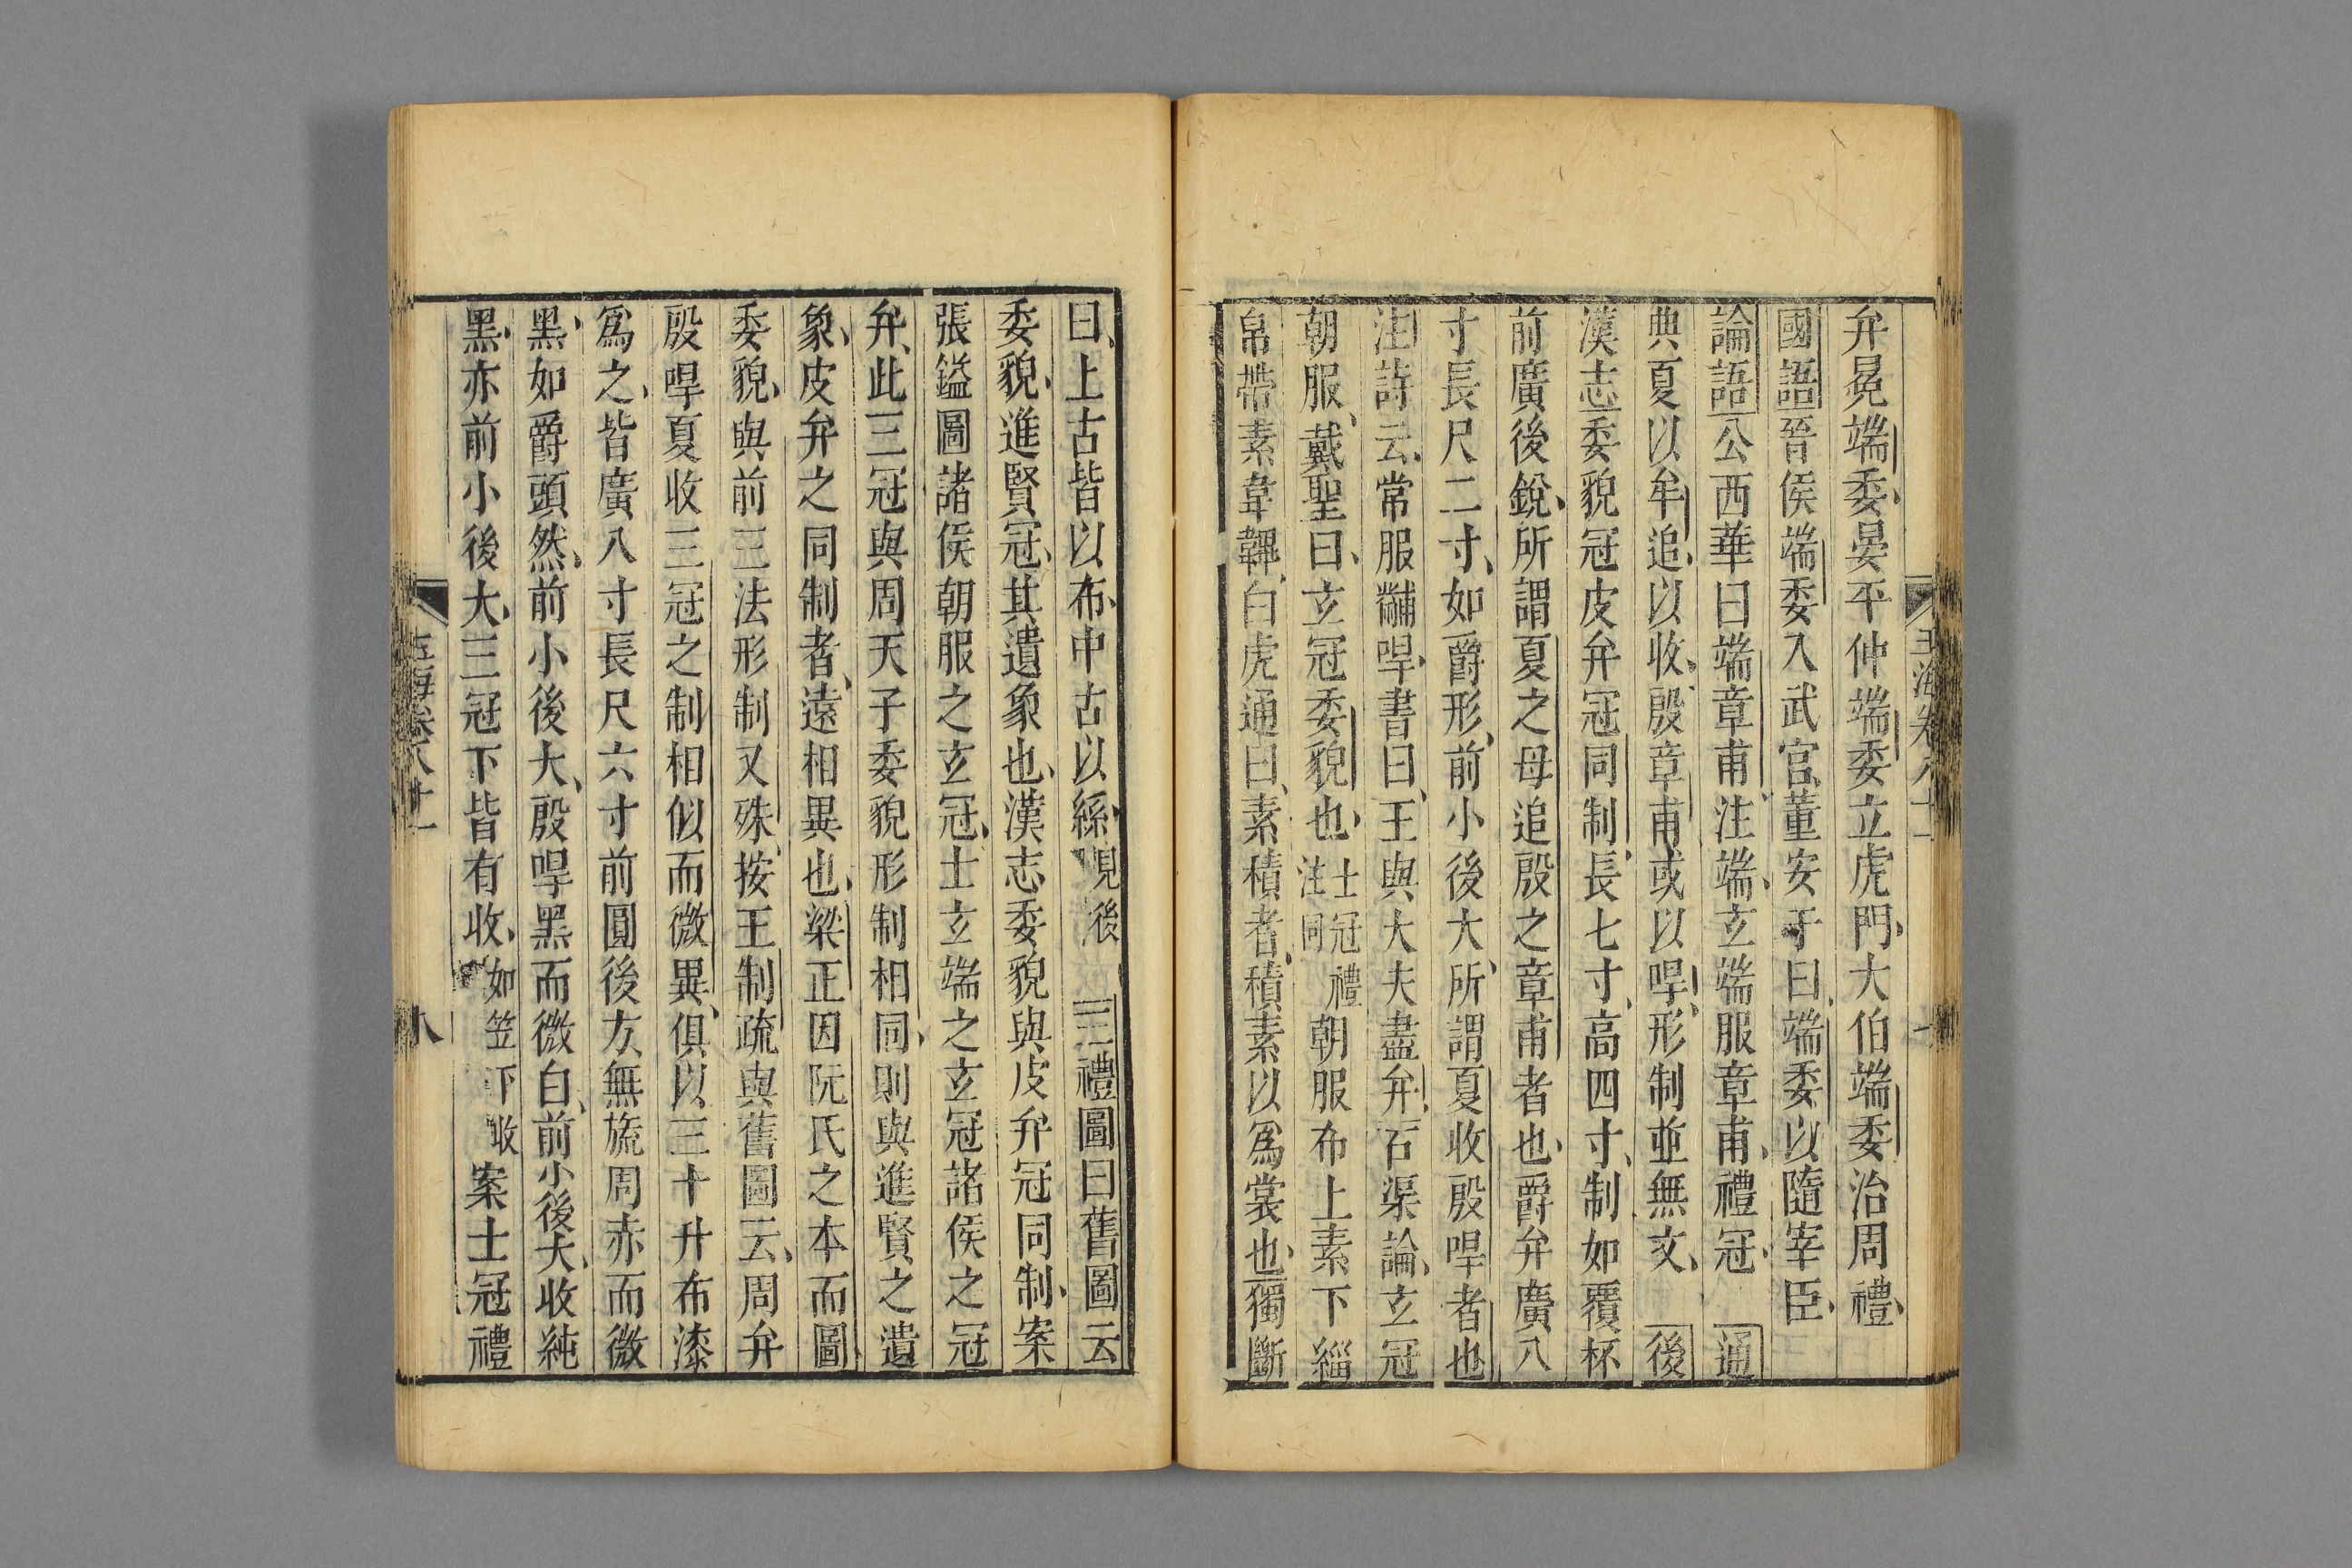 弁冕端委晏平仲端委立虎門大伯端委治周禮
國語晉侯端委入武宮董安于曰端委以隨宰臣
論語公西華曰端章甫注端玄端服章甫禮冠 通
典夏以牟追以收殷章甫或以冔形制並無文 後
漢志委貌冠皮弁冠同制長七寸高四寸制如覆杯
前廣後銳所謂夏之母追殷之章甫者也爵弁廣八
寸長尺二寸如爵形前小後大所謂夏收殷冔者也
注詩云常服黼冔書曰王與大夫盡弁石渠論玄冠
朝服戴聖曰玄冠委貌也士冠禮注同朝服布上素下緇
帛帶素韋韠白虎通曰素積者積素以爲裳也獨斷
曰上古皆以布中古以絲見後三禮圖曰舊圖云
委貌進賢冠其遺象也漢志委貌與皮弁冠同制案
張鎰圖諸侯朝服之玄冠士玄端之玄冠諸侯之冠
弁此三冠與周天子委貌形制相同則與進賢之遺
象皮弁之同制者遠相異也梁正因阮氏之本而圖
委貌與前三法形制又殊按王制疏與舊圖云周弁
殷冔夏收三冠之制相似而微異俱以三十升布漆
爲之皆廣八寸長尺六寸前圓後方無旒周赤而微
黑如爵頭然前小後大殷冔黑而微白前小後大收純
黑亦前小後大三冠下皆有收如笠下收案士冠禮
玉海卷八十一
八